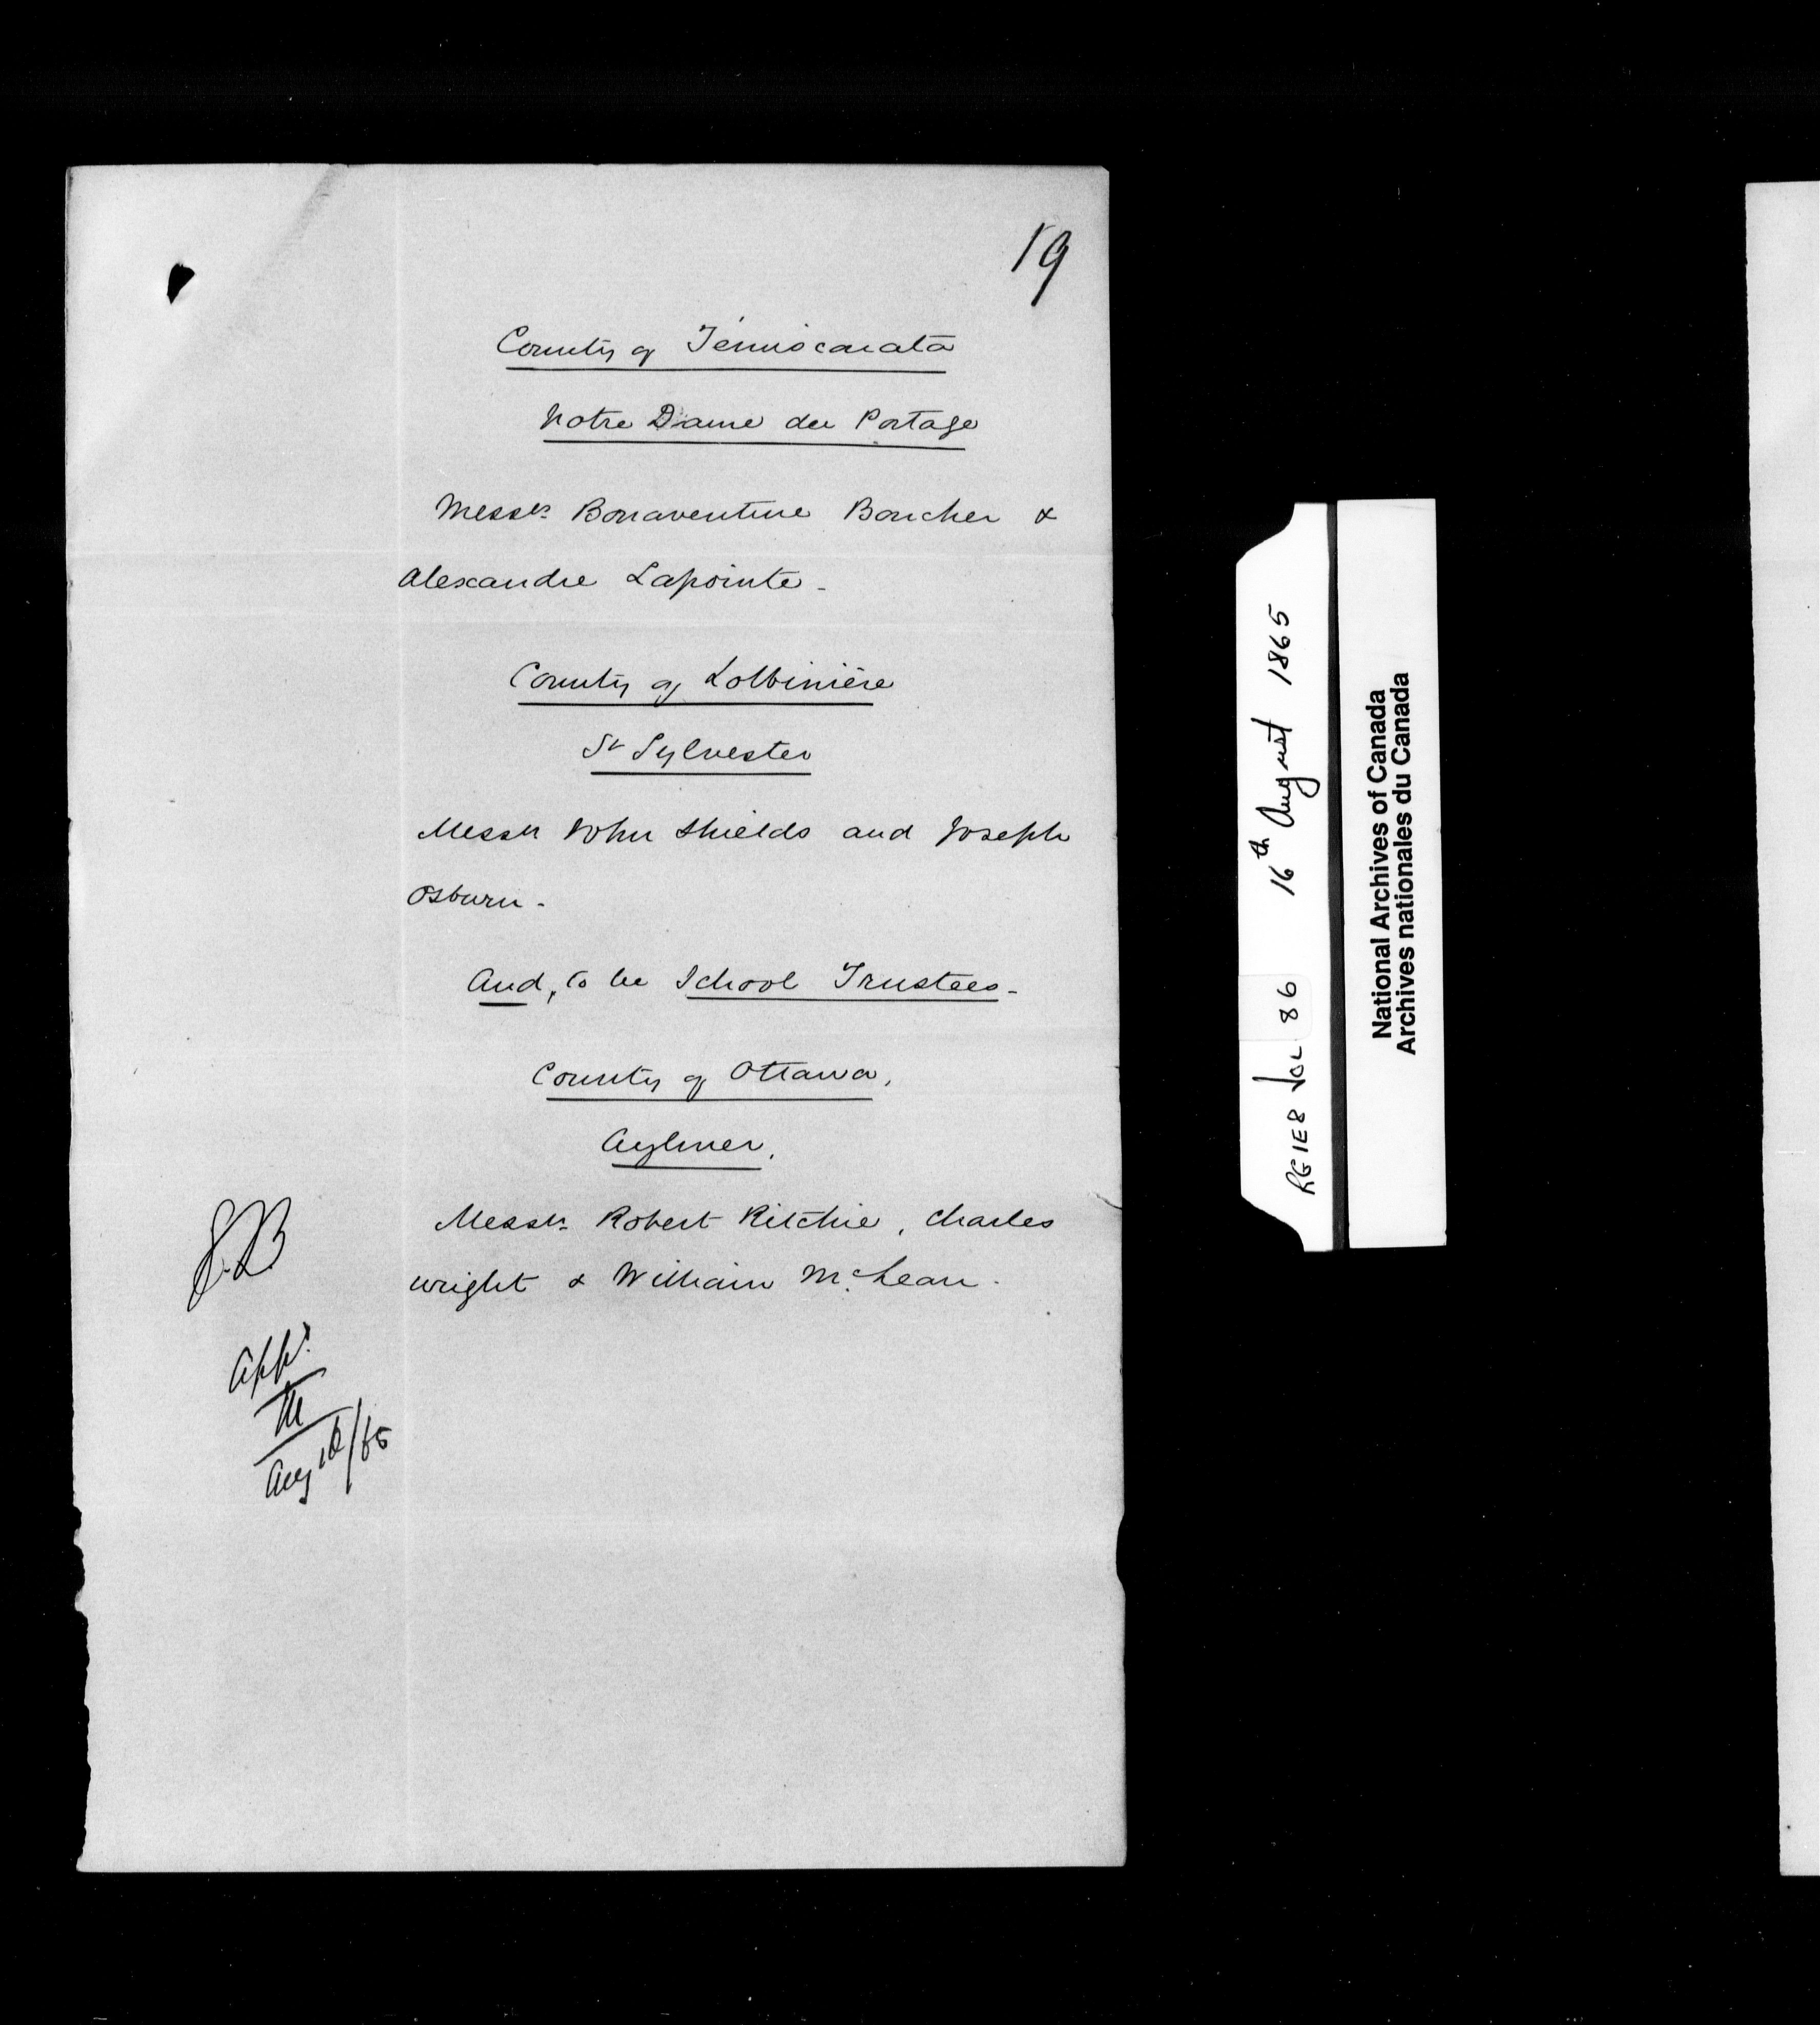 19
County of Témiscouata
Notre Dame du Portage
Messrs. Bonaventure Boucher &
Alexandre Lapointe -
County of Lotbinière
St Sylvester
Messrs John Shields and Joseph
Osburn -
And, to be School Trustees -
County of Ottawa,
Aylmer,
Messrs. Robert Ritchie, Charles
Wright & William McLean -
Appd.
M
Aug 16/65
RG1E8 Vol 86 16th August 1865
National Archives of Canada
Archives nationales du Canada